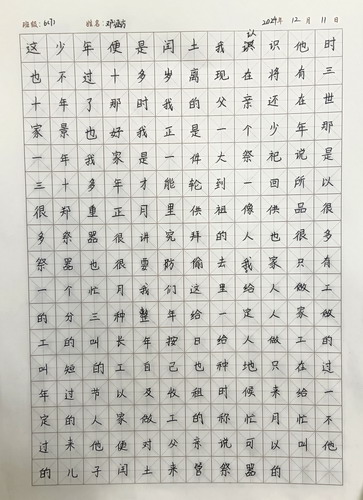 班级： 姓名： 2024年 12月 11日
这少年便是闰土我认识他时
也不过十多岁离现在将有三
十年了那时我的父亲还在世
家景也好我正是一个少年那
一年我家是一件大祭祀说是
三十多年才能轮到一回所以
很郑重正月里供祖像供品很
多祭器很讲究拜的人也很多
祭器也很要防偷去我家只有
一个忙月我们这里给人做工
的分三种整年给一定人家做
工的叫长年按日给人做工的
叫短的工自己也种地只在过
年过节以及收租时候来给一
定的人家做工的称忙月忙不
过来他便对父亲说可以叫他
的儿子闰土来管祭器的